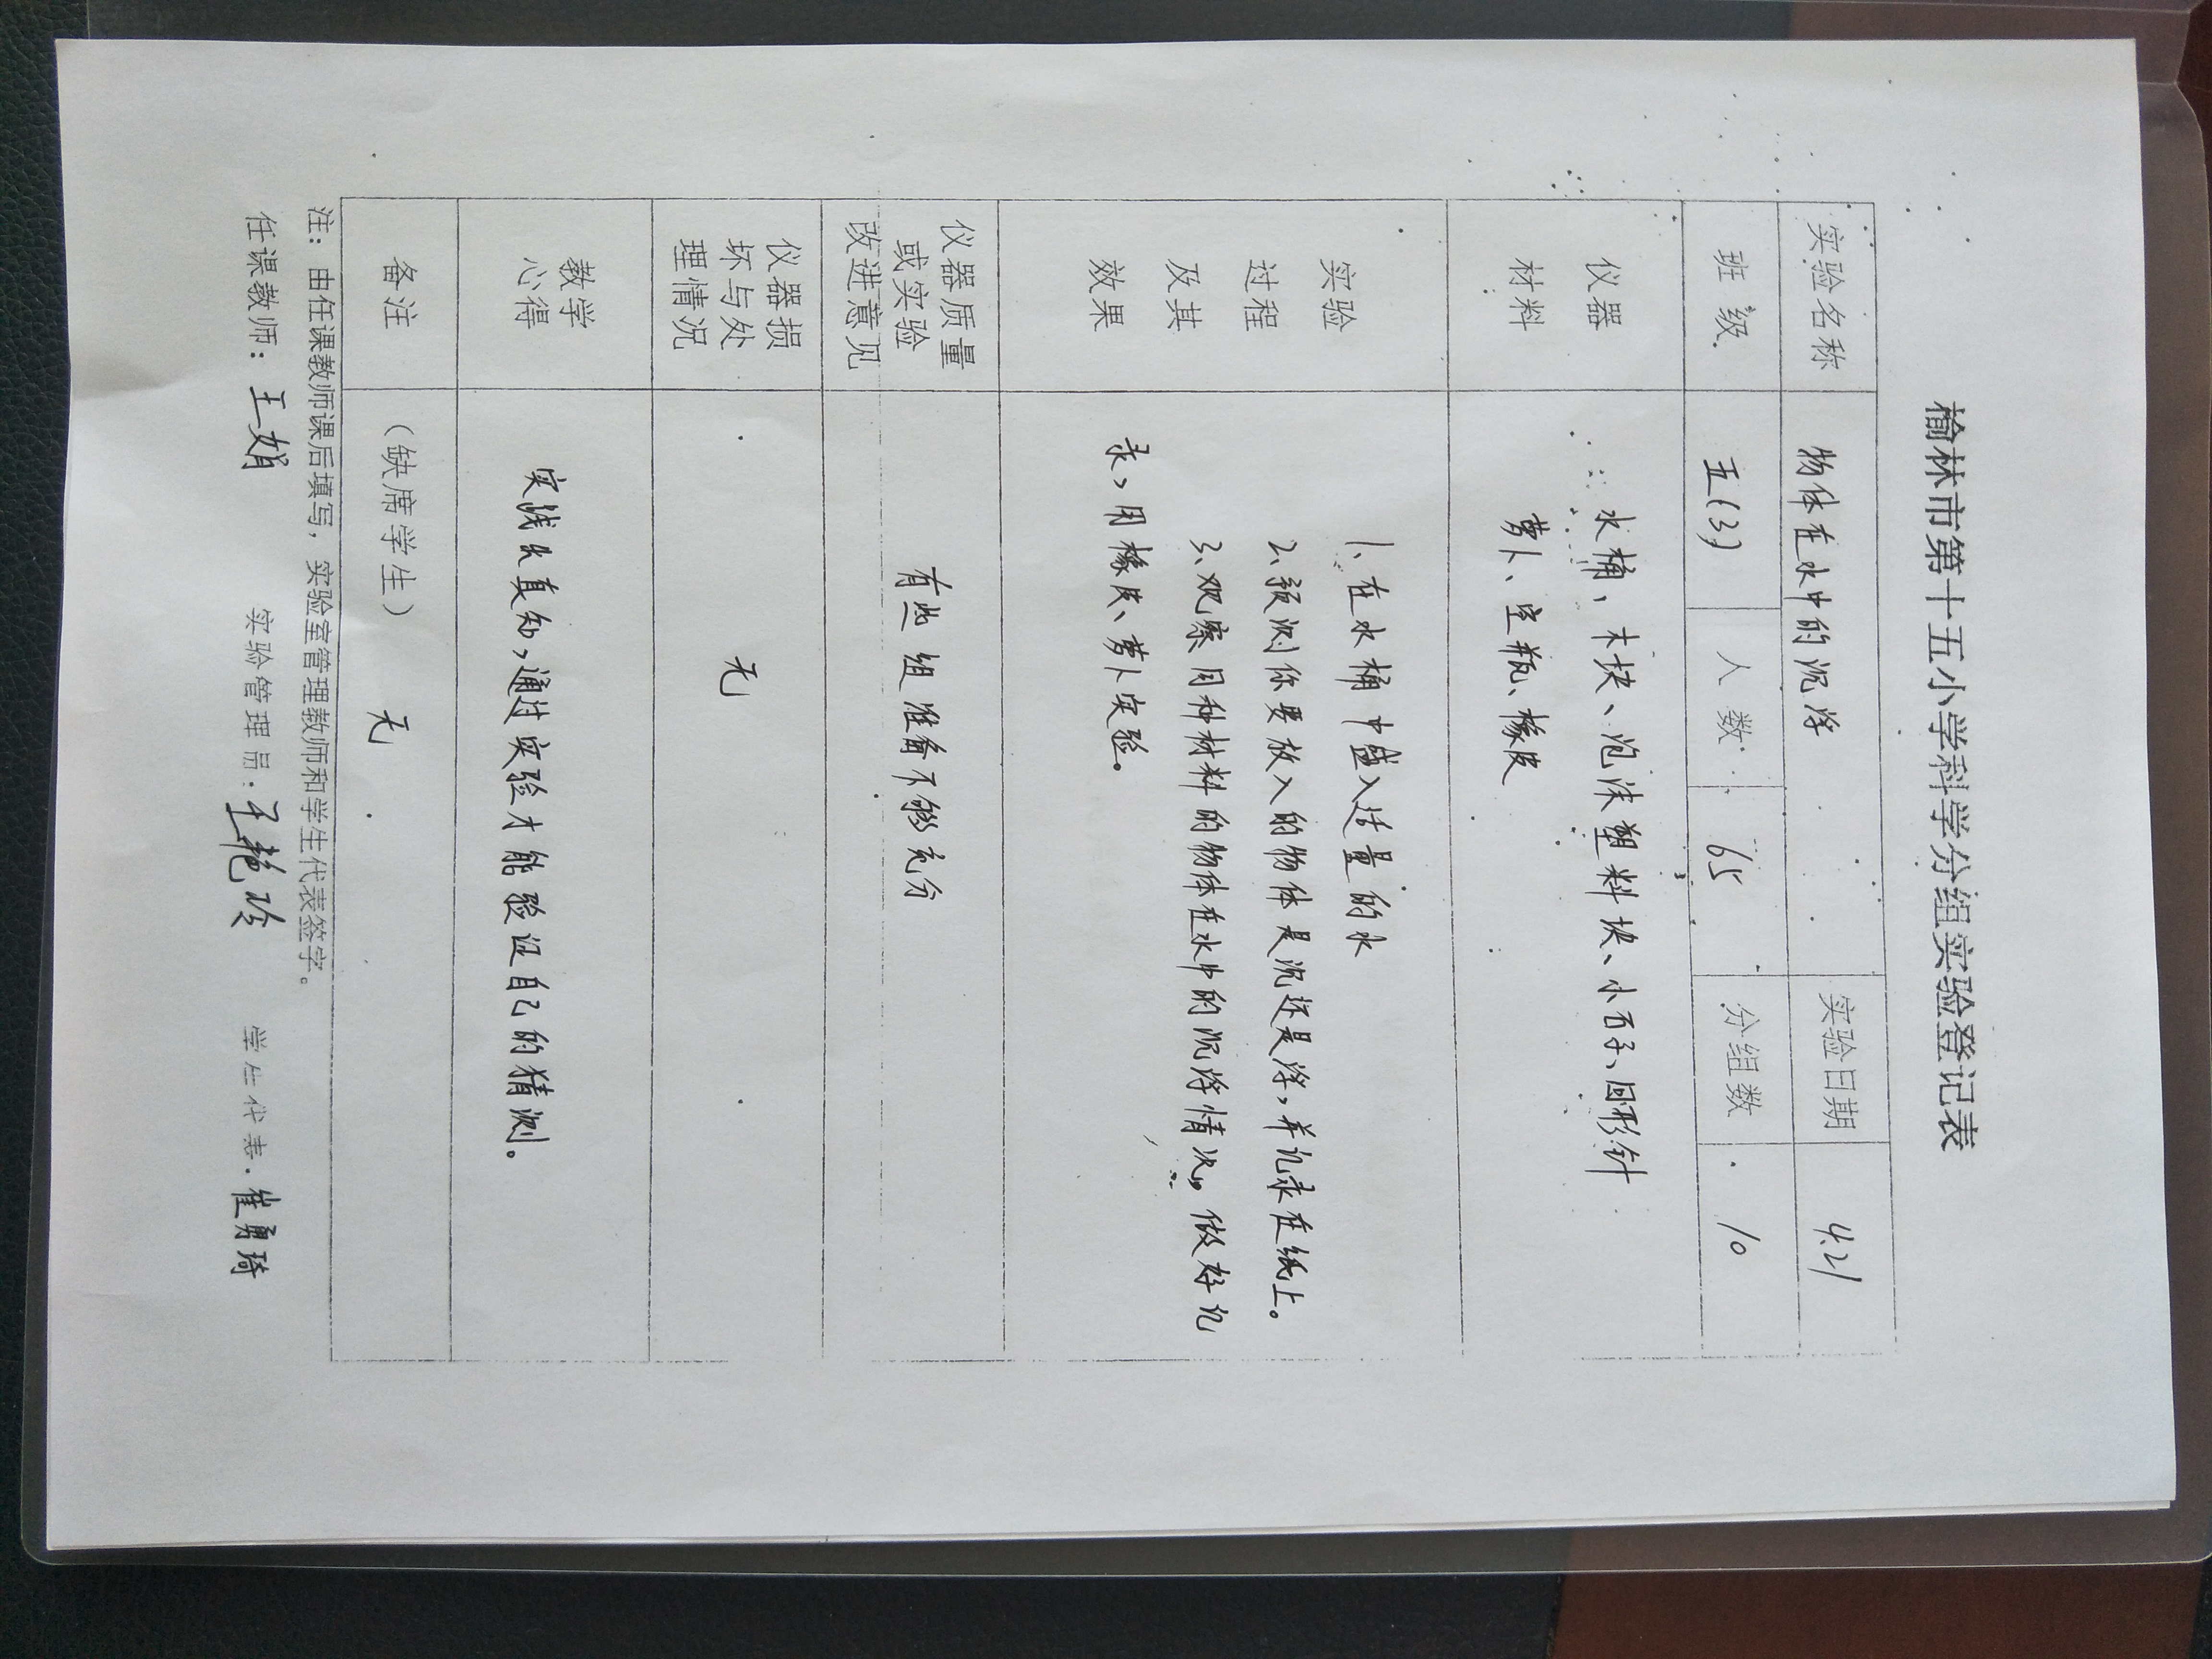 榆林市第十五小学科学分组实验登记表
实验名称 物体在水中的沉浮 实验日期 4.21
班级 五(3) 人数 65 分组数 10
仪器 水桶，木块、泡沫塑料块、小石子、回形针
材料 萝卜、空瓶、橡皮
实验 1、在水桶中盛入适量的水
过程 2、预测你要放入的物体是沉还是浮，并记录在纸上。
及其 3、观察同种材料的物体在水中的沉浮情况。做好记
效果 录，用橡皮、萝卜实验。
仪器质量
或实验 有些组准备不够充分
改进意见
仪器损
坏与处 无
理情况
教学
心得 实践出真知，通过实验才能验证自己的猜测。
备注 （缺席学生） 无
注：由任课教师课后填写，实验室管理教师和学生代表签字。
任课教师：王娟 实验管理员：王艳玲 学生代表.崔勇琦